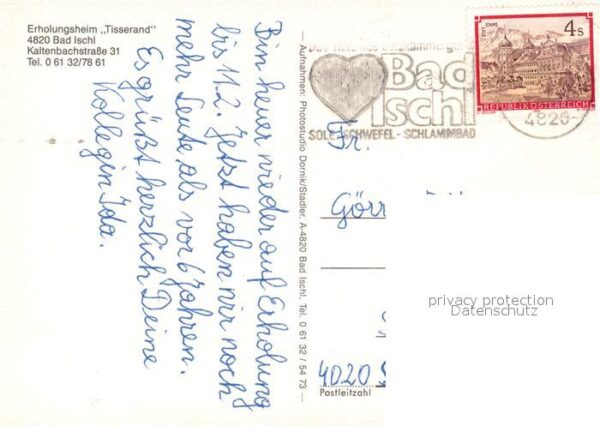 Erholungsheim „Tisserand"
4820 Bad Ischl
Kaltenbachstraße 31
Tel. 0 61 32/78 61
Bin heuer wieder auf Erholung
bis 11.2. Jetzt haben wir noch
mehr Leute als vor 6 Jahren.
Es grüßt herzlich Deine
Kollegin Ida.
— Aufnahmen: Photostudio Dornik/Stadler, A-4820 Bad Ischl, Tel. 0 61 32 / 54 73 —
Bad
Ischl
SOLE - SCHWEFEL - SCHLAMMBAD
4820
STIFT STAMS
4 S
REPUBLIK ÖSTERREICH
Fr.
Görr
4020
Postleitzahl
privacy protection
Datenschutz